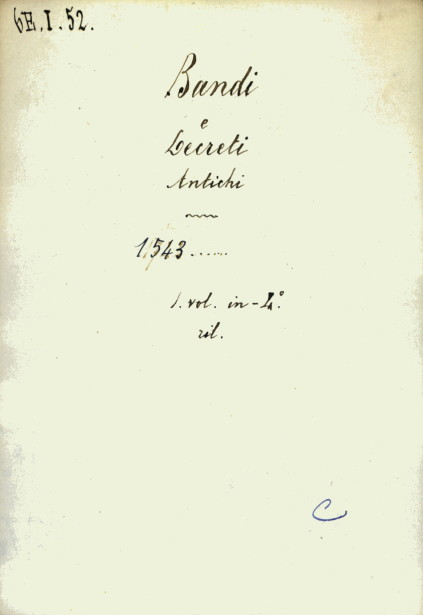 6E.I.52.
Bandi
e
Decreti
Antichi
1543......
1. vol. in-4.º
ril.
C